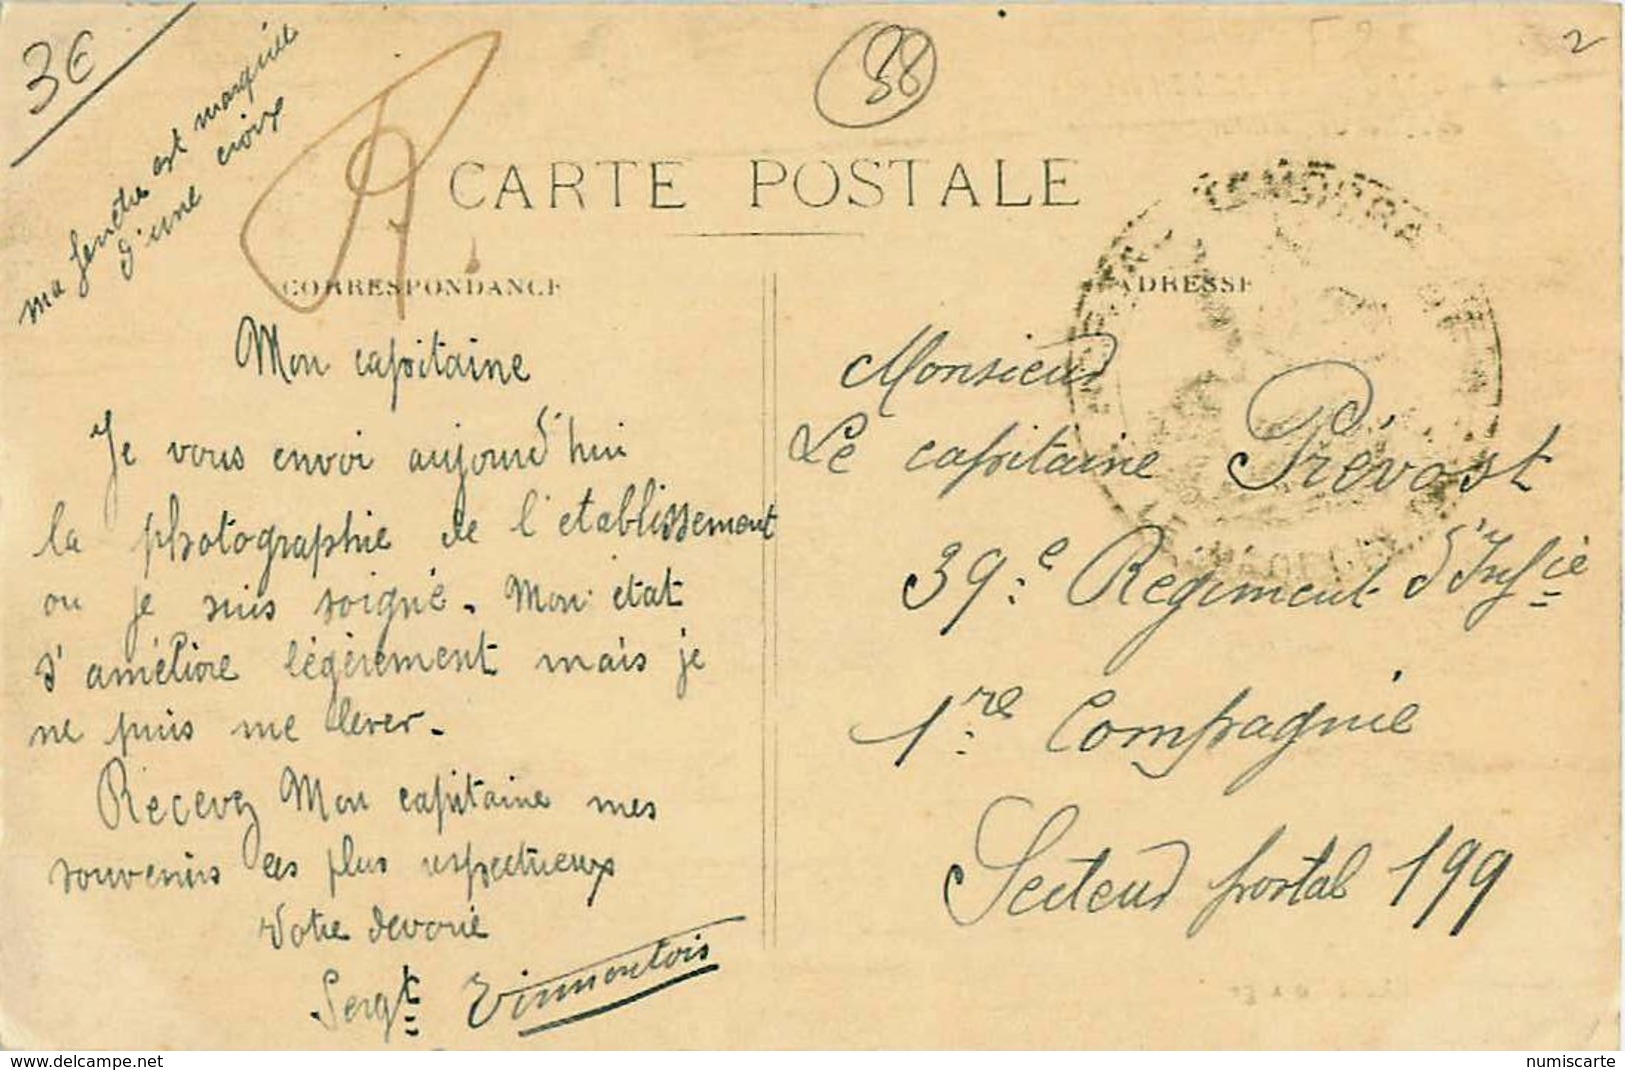 3€
38
2
ma fenetre est marquée
d'une croix
CARTE POSTALE
CORRESPONDANCE
Mon capitaine
Je vous envoi aujourd'hui
la photographie de l'etablissement
ou je suis soigné. Mon état
s'améliore légèrement mais je
ne puis me lever.
Recevez Mon capitaine mes
souvenirs les plus respectueux
Votre devoué
Sergt Vimontois
ADRESSE
Monsieur
Le capitaine Prévost
39e Regiment d'Infie
1re Compagnie
Secteur postal 199
www.delcampe.net
numiscarte